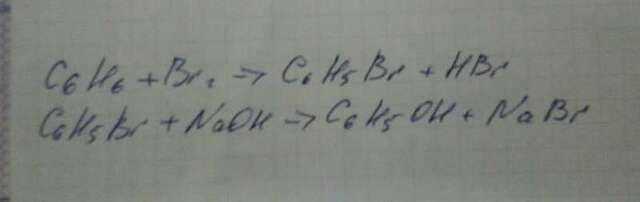 C₆H₆ + Br₂ => C₆H₅Br + HBr
C₆H₅Br + NaOH => C₆H₅OH + NaBr